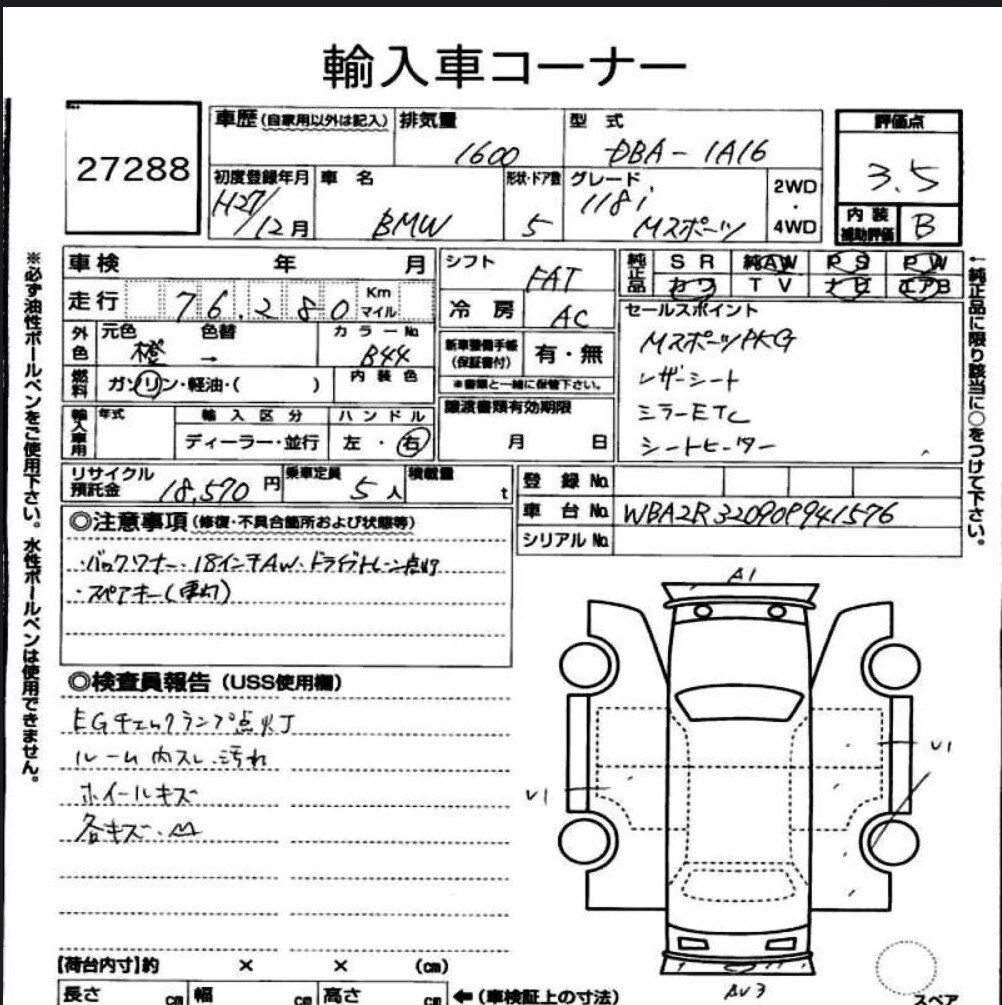 輸入車コーナー
27288
車歴 (自家用以外は記入)
排気量
1600
型式
DBA-1A16
評価点
3.5
初度登録年月
H27/12月
車名
BMW
形状・ドア数
5
グレード
118i
Mスポーツ
2WD
・
4WD
内装
補助評価
B
車検 年 月
走行 76,280 Km マイル
外色
元色 色替
橙 →
カラーNo
B44
燃料
ガソリン・軽油・( )
内装色
輸入車用
年式
輸入区分
ハンドル
ディーラー・並行
左・右
シフト
FAT
冷房
AC
新車整備手帳
(保証書付)
有・無
※書類と一緒に保管下さい。
譲渡書類有効期限
月 日
純正品
SR 純AW PS PW
カワ TV ナビ エアB
セールスポイント
MスポーツPKG
レザーシート
ミラーETC
シートヒーター
リサイクル
預託金
18,570 円
乗車定員
5人
積載量
t
登録No
車台No WBA2R320909941576
シリアルNo
◎注意事項 (修復・不具合箇所および状態等)
・バックソナー・18インチAW・ドライブトレーン点灯
・スペアキー(車灯)
◎検査員報告 (USS使用欄)
EGチェックランプ点灯
ルーム内スレ、汚れ
ホイールキズ
各キズ・凹
A1
U1
U1
AU3
スペア
【荷台内寸】約 × × (cm)
長さ cm 幅 cm 高さ cm ←(車検証上の寸法)
※必ず油性ボールペンをご使用下さい。水性ボールペンは使用できません。
←純正品に限り該当に○をつけて下さい。